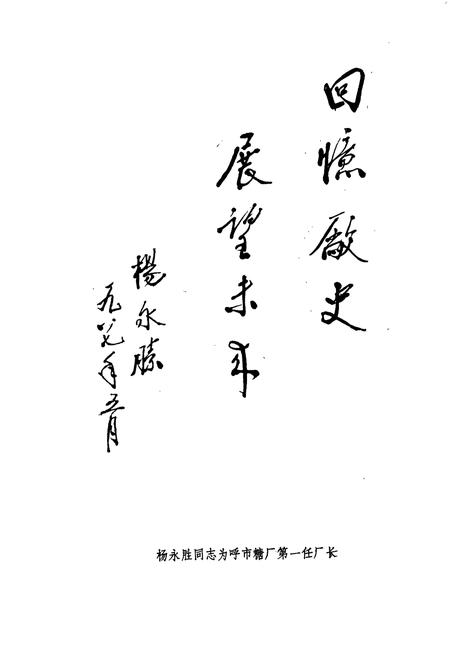 回憶厰史
展望未来
楊永勝
一九八七年五月
杨永胜同志为呼市糖厂第一任厂长